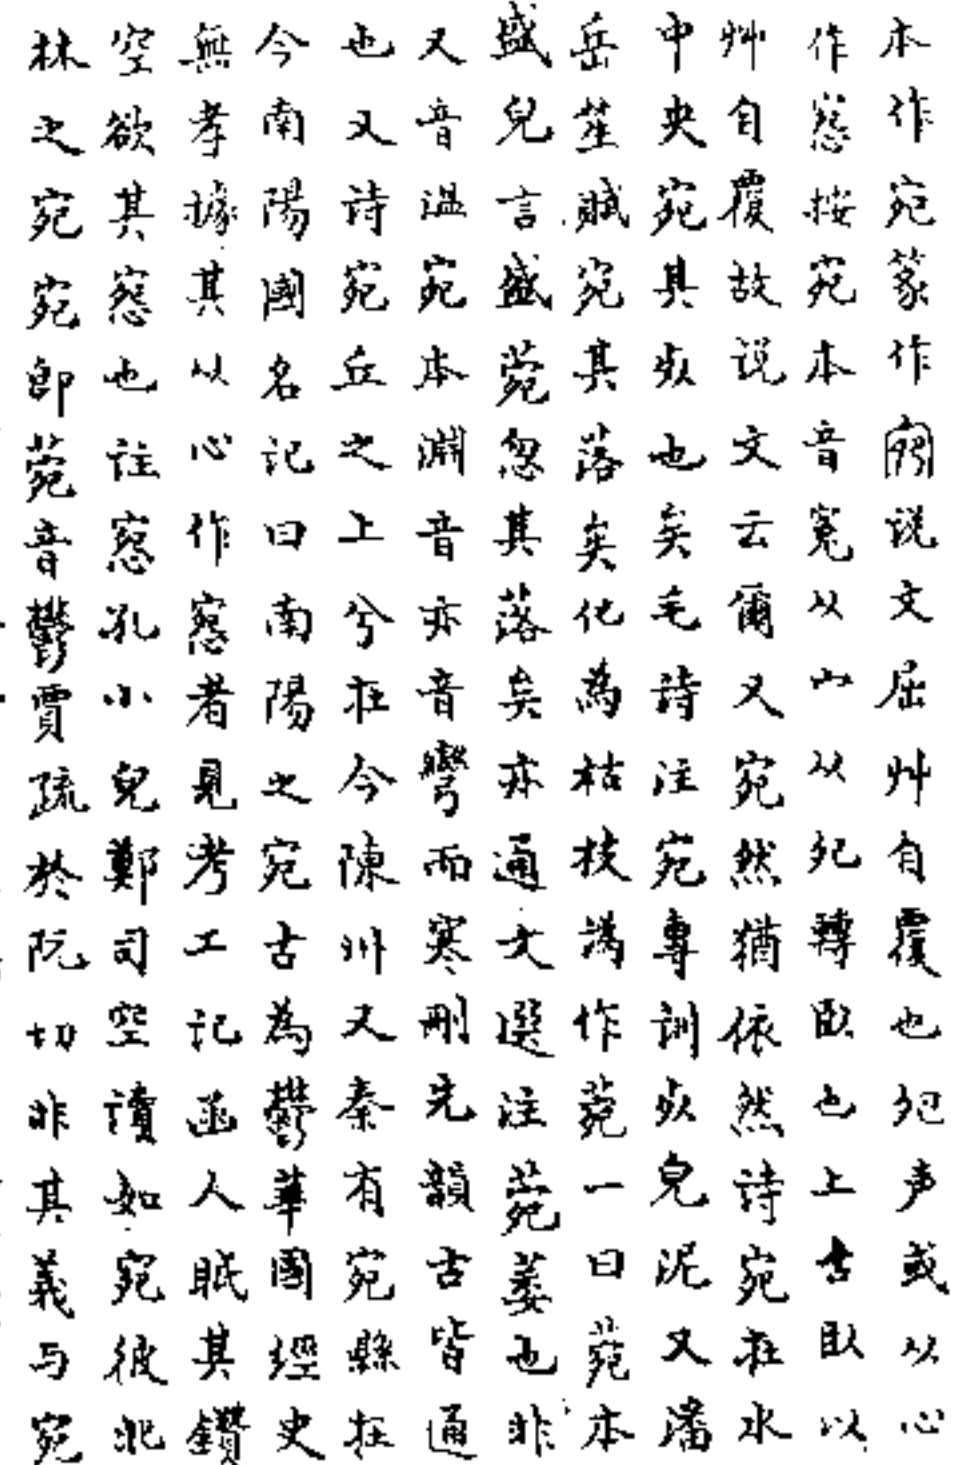 本作宛篆作㝃说文屈艸自覆也夗声或从心
作惌按宛本音冤从宀从夗轉臥也上古臥以
艸自覆故说文云爾又宛然猶依然詩宛在水
中央宛其死也矣毛詩注宛專訓死皃泥又潘
岳笙賦宛其落矣化為枯枝譌作菀一曰菀本
盛皃言盛菀忽其落矣亦通文選注菀蔞也非
又音温宛本淵音亦音彎而寒刪先韻古皆通
也又詩宛丘之上兮在今陳州又秦有宛縣在
今南陽國名記曰南陽之宛古為鬱華國經史
無孝據其以心作惌者見考工記函人眡其鑽
空欲其惌也註惌孔小皃鄭司空讀如宛彼北
林之宛宛即菀音鬱賈疏於阮切非其義与宛